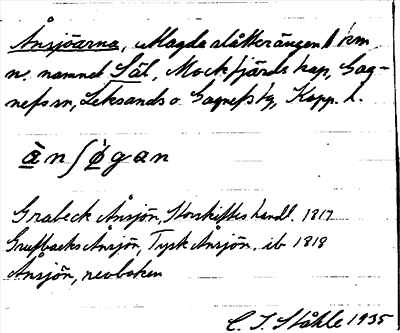 Ånsjöarna, slåtterängen 1 km
n. namnet Säl, Mockfjärds kap, Gag-
nefs sn, Leksands o Gagnefs tg, Kopp. l.
ànʃø̀gan
Grabeck Ånsjön, Storskiftes handl. 1817
Ånsjön, Tysk Ånsjön, ib 1818
Ånsjön, reoboken
C. I. Ståhle 1935